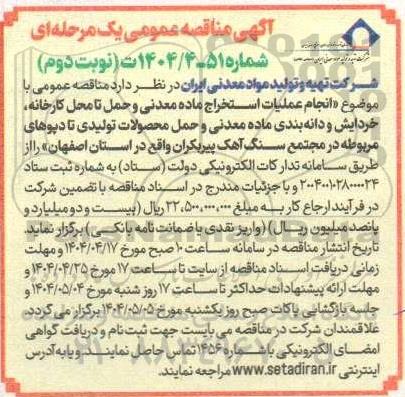 آگهی مناقصه عمومی یک مرحله‌ای
شماره ۵۱-۱۴۰۴/۴ت (نوبت دوم)
شرکت تهیه و تولید مواد معدنی ایران در نظر دارد مناقصه عمومی با
موضوع «انجام عملیات استخراج ماده معدنی و حمل تا محل کارخانه،
خردایش و دانه‌بندی ماده معدنی و حمل محصولات تولیدی تا دپوهای
مربوطه در مجتمع سنگ آهک پیربکران واقع در استان اصفهان» را از
طریق سامانه تدارکات الکترونیکی دولت (ستاد) به شماره ثبت ستاد
۲۰۰۴۰۰۱۰۲۸۰۰۰۰۲۴ و با جزئیات مندرج در اسناد مناقصه با تضمین شرکت
در فرآیند ارجاع کار به مبلغ ۲۲,۵۰۰,۰۰۰,۰۰۰ ریال (بیست و دو میلیارد و
پانصد میلیون ریال) (واریز نقدی یا ضمانت نامه بانکی) برگزار نماید.
تاریخ انتشار مناقصه در سامانه ساعت ۱۰ صبح مورخ ۱۴۰۴/۰۴/۱۷ و مهلت
زمانی دریافت اسناد مناقصه از سایت تا ساعت ۱۷ مورخ ۱۴۰۴/۰۴/۲۵ و
مهلت ارائه پیشنهادات حداکثر تا ساعت ۱۷ روز شنبه مورخ ۱۴۰۴/۰۵/۰۴ و
جلسه بازگشایی پاکات صبح روز یکشنبه مورخ ۱۴۰۴/۰۵/۰۵ برگزار می گردد.
علاقمندان شرکت در مناقصه می بایست جهت ثبت نام و دریافت گواهی
امضای الکترونیکی با شماره ۱۴۵۶ تماس حاصل نمایند. و یا به آدرس
اینترنتی www.setadiran.ir مراجعه نمایند.